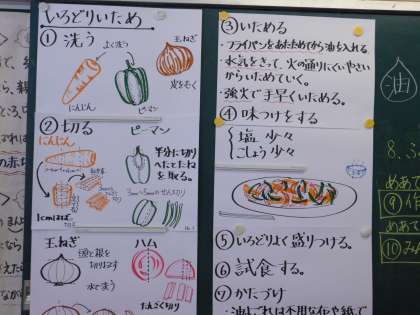 いろどりいため
① 洗う
よく洗う
玉ねぎ
皮をむく
にんじん
ピーマン
② 切る
にんじん
ピーマン
半分に切り
へたとたね
を取る。
玉ねぎ
頭と根を
切り落とす
水であらう
ハム
たんざく切り
③ いためる
・フライパンをあたためてから油を入れる。
・水気をきって、火の通りにくいやさい
からいためていく。
・強火で手早くいためる。
④ 味つけをする
塩 少々
こしょう 少々
⑤ いろどりよく盛りつける。
⑥ 試食する。
⑦ かたづけ
・油よごれは不用な布や紙で
油
8.
めあて
⑨ 作
めあて
⑩ み